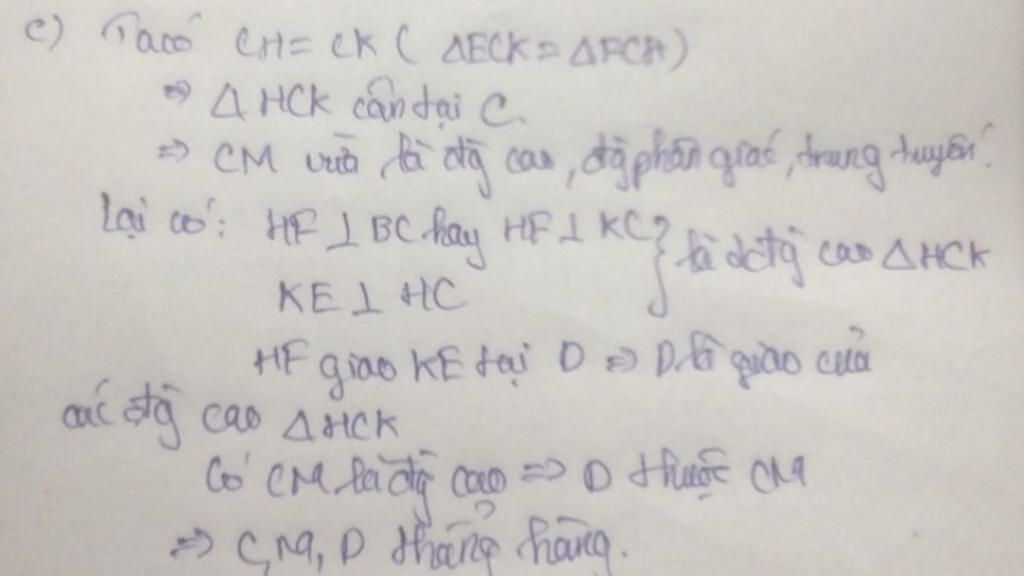 c) Ta có CH = CK ( ΔECK = ΔFCH )
⇒ Δ HCK cân tại C.
⇒ CM vừa là đg cao, đg phân giác, trung tuyến.
Lại có: HF ⊥ BC hay HF ⊥ KC } là đg cao Δ HCK
KE ⊥ HC
HF giao KE tại D ⇒ D là giao của
các đg cao Δ HCK
Có CM là đg cao ⇒ D thuộc CM
⇒ C, M, D thẳng hàng.